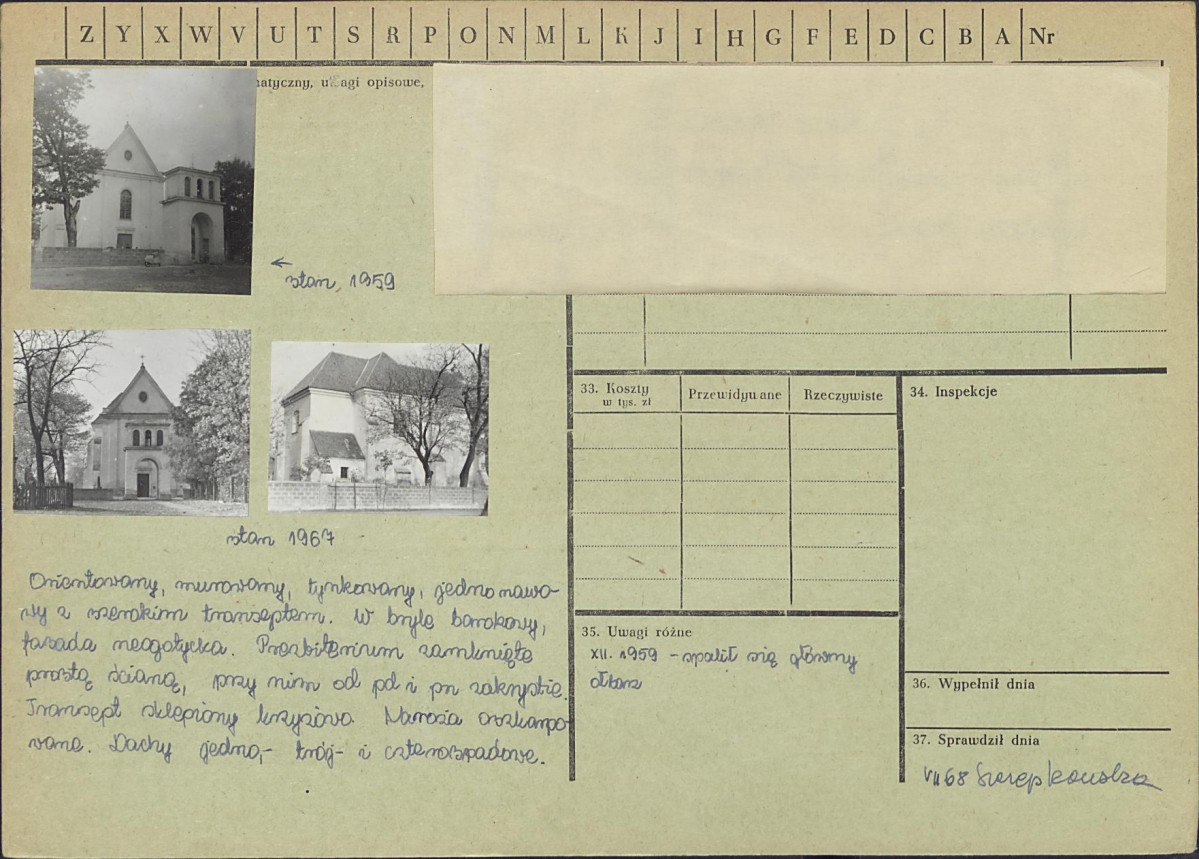 Z Y X W V U T S R P O N M L K J I H G F E D C B A Nr
atyczny, uwagi opisowe,
← stan, 1959
stan 1967
Orientowany, murowany, tynkowany, jednonawo-
wy z szerokim transeptem. W bryle barokowy,
fasada neogotycka. Prezbiterium zamknięte
prostą ścianą, przy nim od pd i pn zakrystie.
Transept sklepiony krzyżowo. Naroża oszkarpo
wane. Dachy jedno,- trój- i czterospadowe.
33. Koszty
w tys. zł
Przewidywane
Rzeczywiste
34. Inspekcje
35. Uwagi różne
XII. 1959 - spalił się główny
ołtarz
36. Wypełnił dnia
37. Sprawdził dnia
VII 68